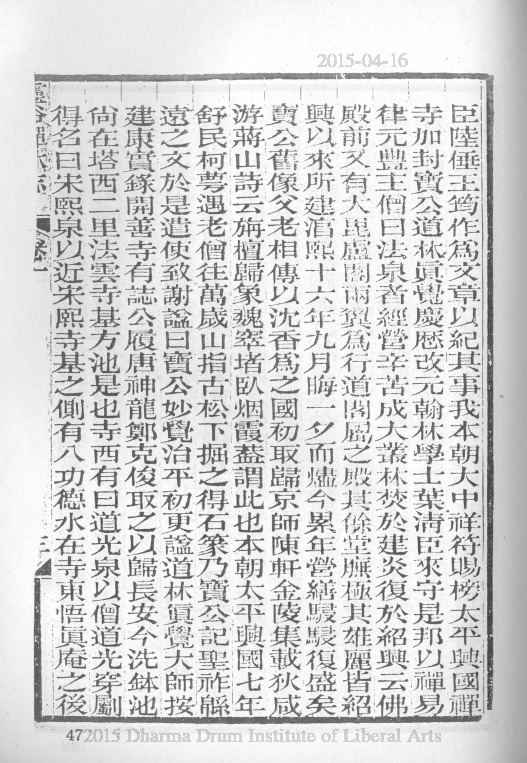 2015-04-16
臣陸倕王筠作為文章以紀其事我本朝大中祥符賜榜太平興國禪
寺加封寶公道林眞覺慶歷改元翰林學士葉清臣來守是邦以禪易
律元豐主僧曰法泉者經營辛苦成大叢林焚於建炎復於紹興云佛
殿前又有大毘盧閣兩翼為行道閣屬之殿其餘堂廡極其雄麗皆紹
興以來所建淳熙十六年九月晦一夕而燼今累年營繕駸駸復盛矣
寶公舊像父老相傳以沈香為之國初取歸京師陳軒金陵集載狄咸
游蔣山詩云旃檀歸象魏窣堵臥烟霞葢謂此也本朝太平興國七年
舒民柯萼遇老僧往萬歲山指古松下掘之得石篆乃寶公記聖祚緜
遠之文於是遣使致謝諡曰寶公妙覺治平初更諡道林眞覺大師按
建康實錄開善寺有誌公履唐神龍鄭克俊取之以歸長安今洗鉢池
尚在塔西二里法雲寺基方池是也寺西有曰道光泉以僧道光穿劚
得名曰宋熙泉以近宋熙寺基之側有八功德水在寺東悟眞庵之後
卷一
三
472015 Dharma Drum Institute of Liberal Arts